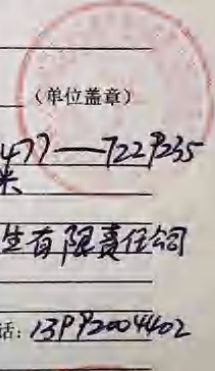 （单位盖章）
477—7229235
米
生有限责任公司
话：13992004402